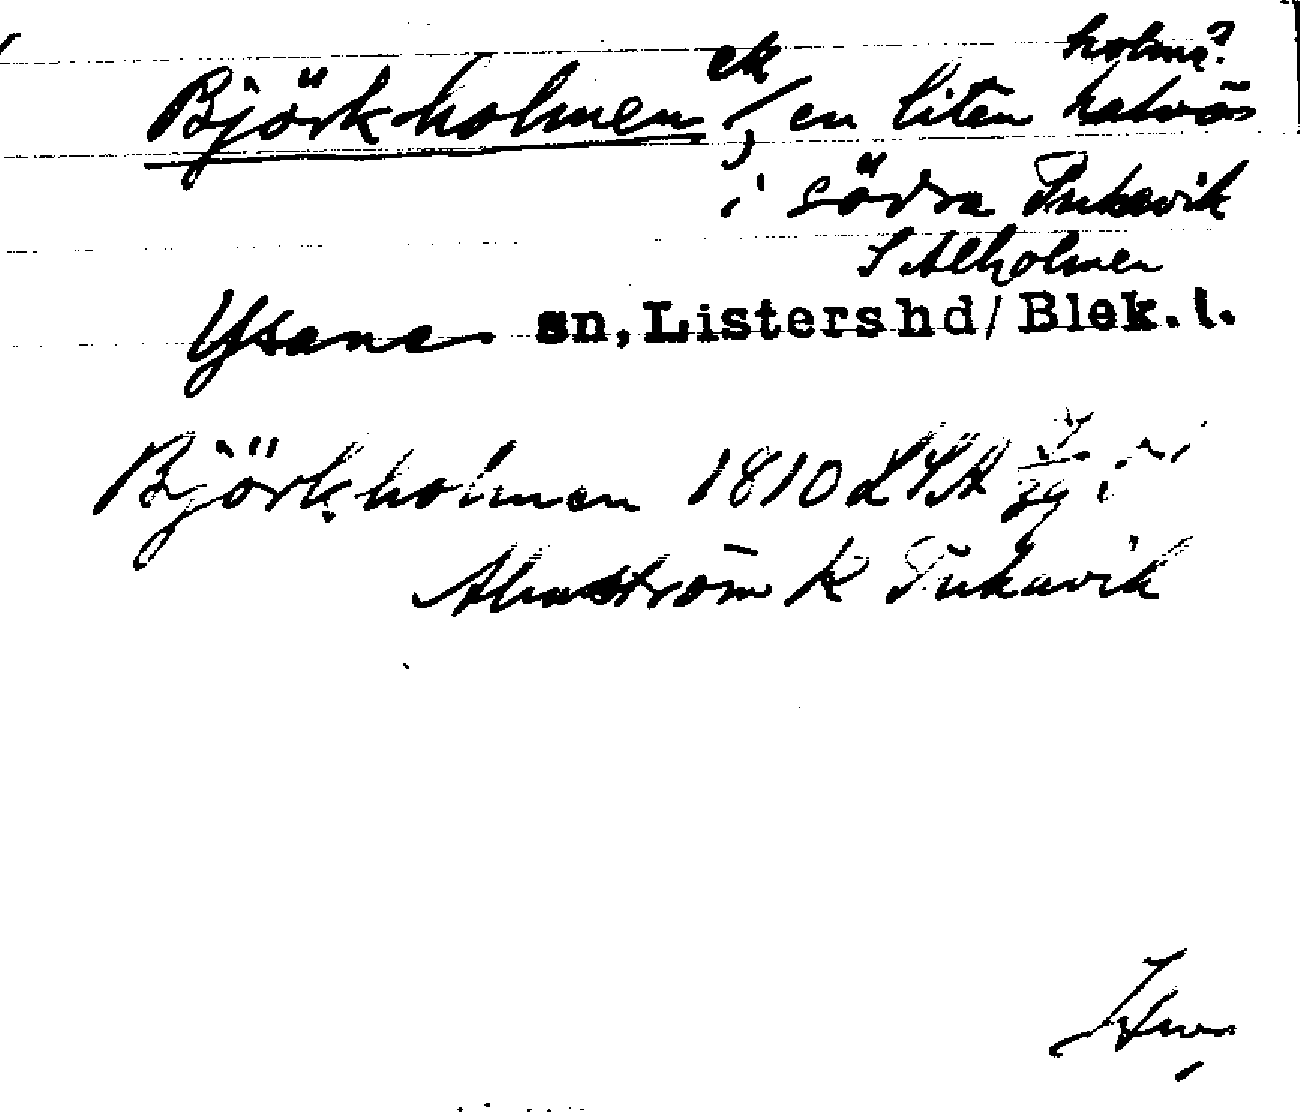 ek holme?
Björkholmen, en liten halvö
i södra Pukavik
S Alholmen
Ysane sn, Listers hd/Blek. l.
Björkholmen 1810 LSA
Almström K Pukavik